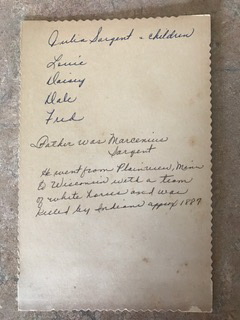 Julia Sargent - children
Louie
Daisey
Dale
Fred
Father was Marcenius
Sargent
He went from Plainview, Minn
to Wisconsin with a team
of white horses and was
killed by Indians approx 1889